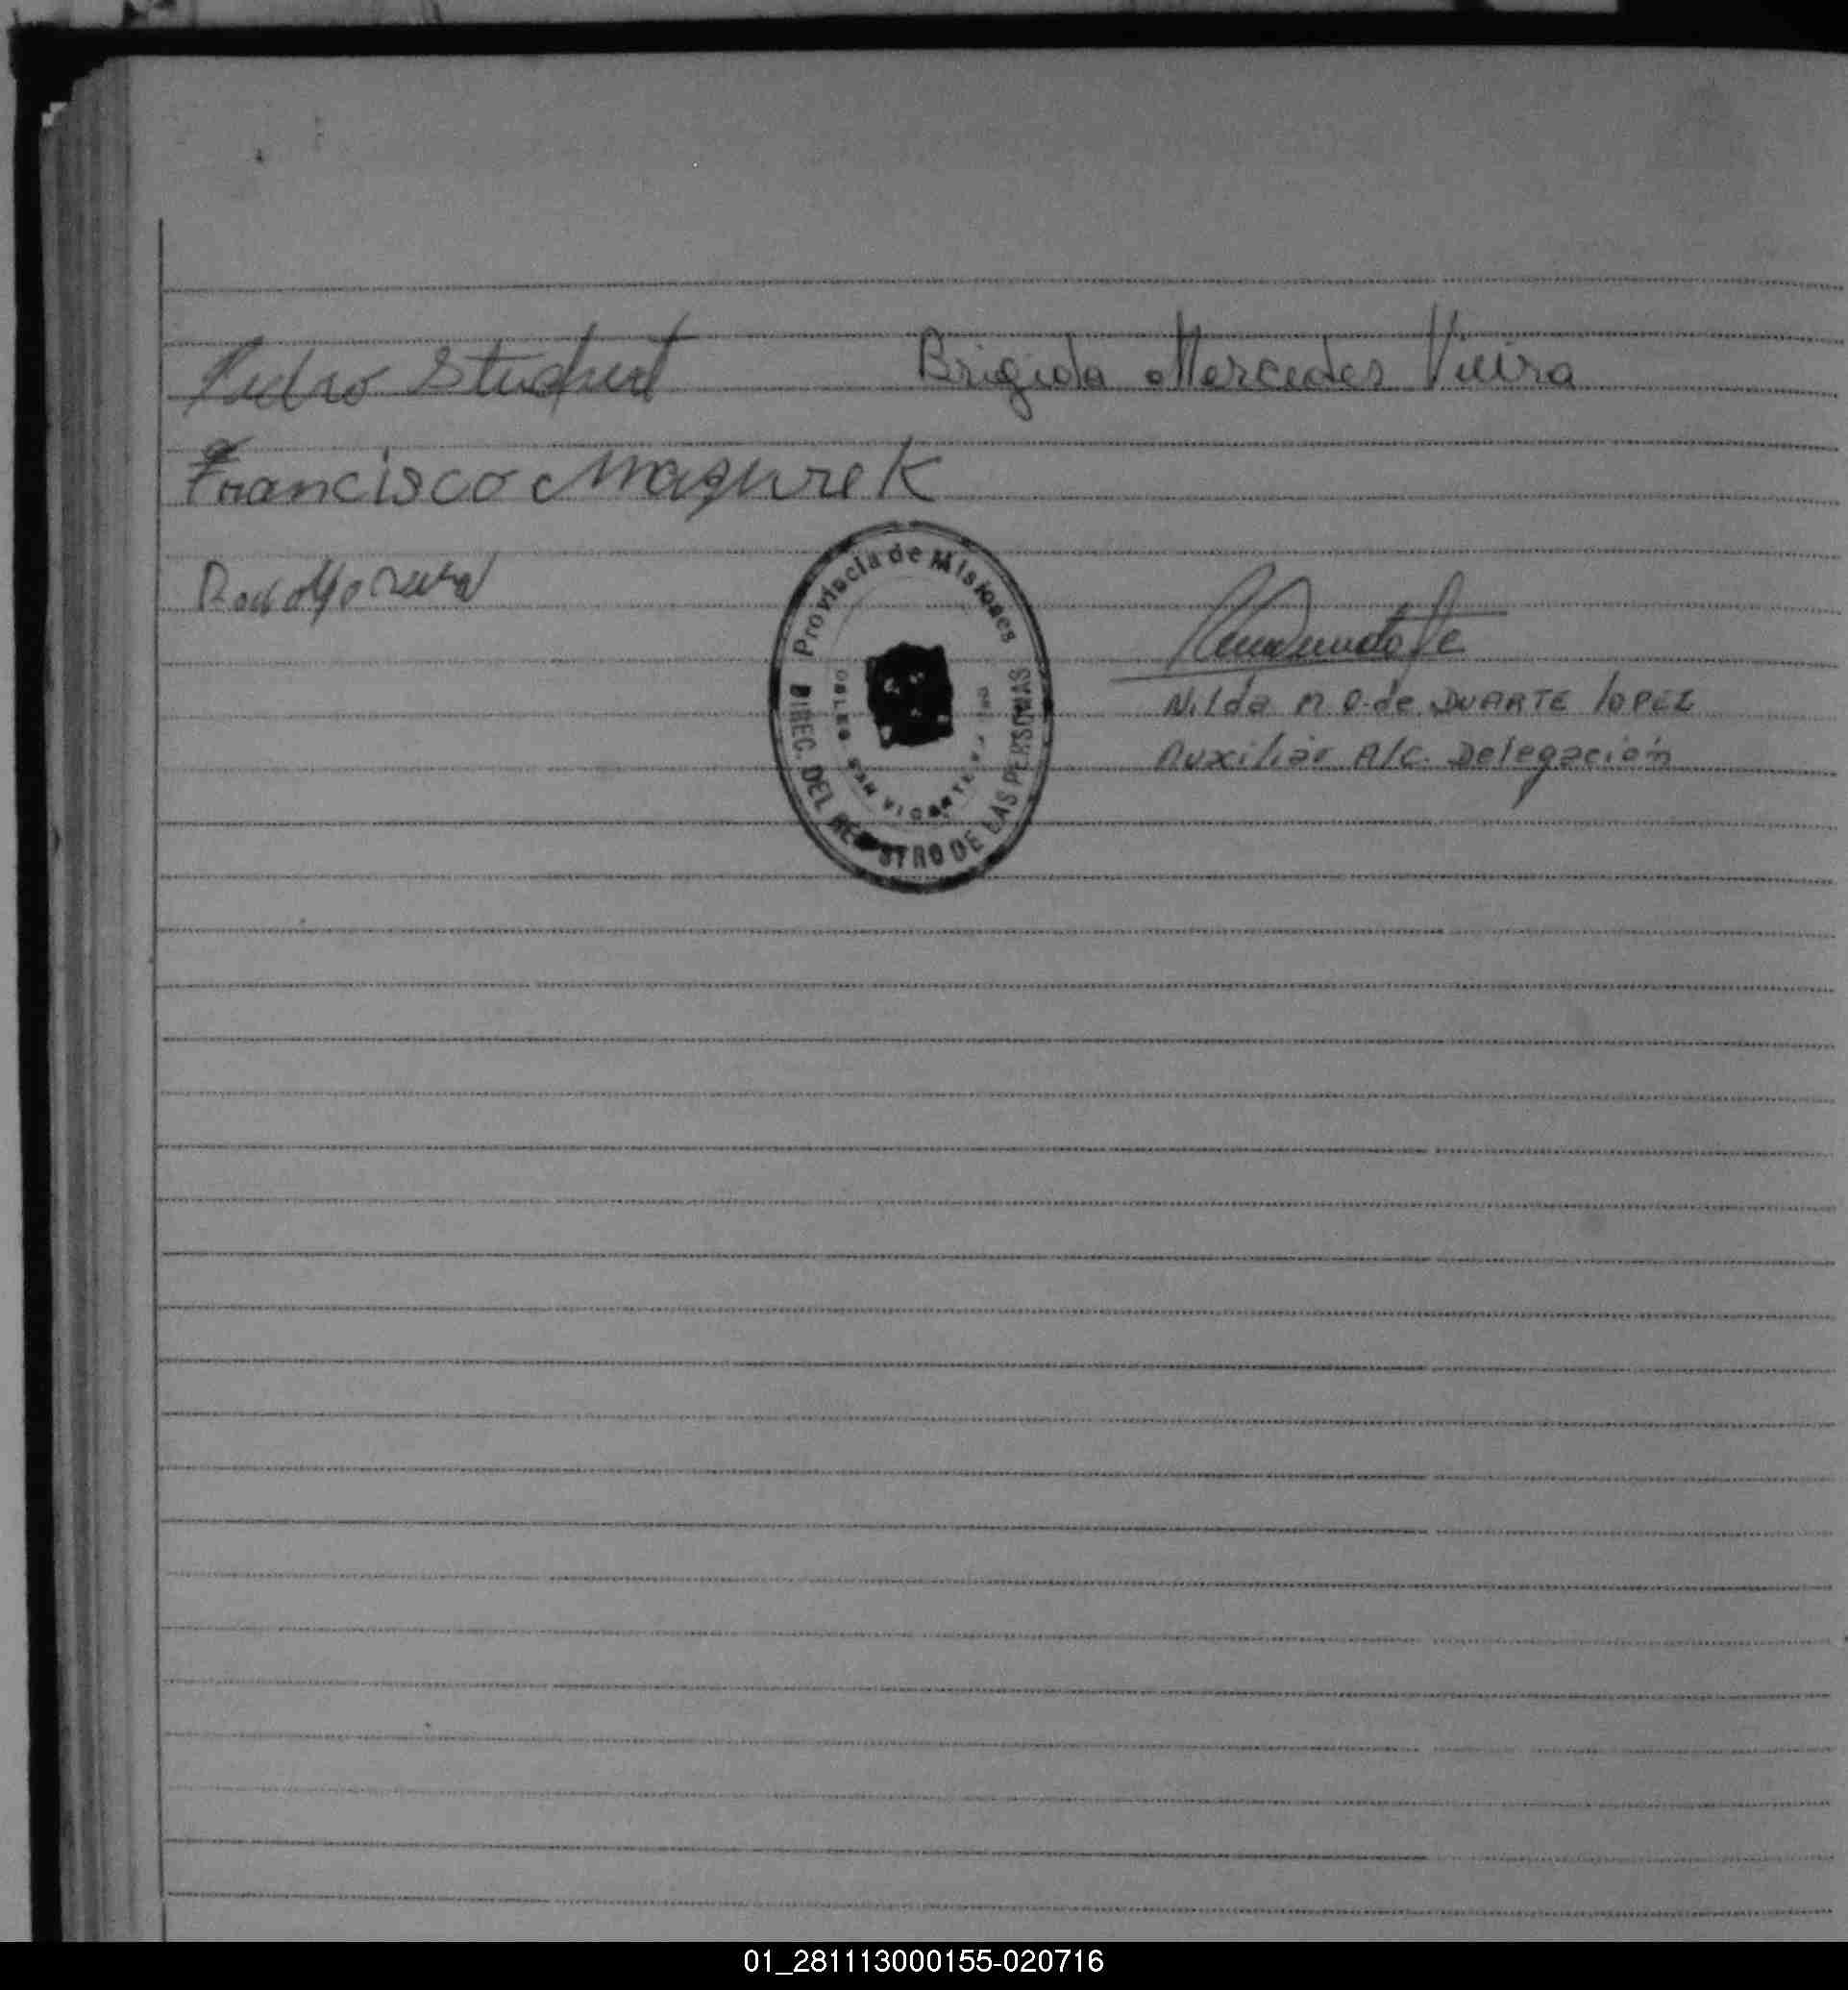 Pedro
Brigida Mercedes Vieira
Francisco Mazurek
Rodolfo
Provincia de Misiones
DIREC. DEL REGISTRO DE LAS PERSONAS
SAN VICENTE
Nilda M O. de DUARTE lOPEZ
Auxiliar A/C. Delegación
01_281113000155-020716